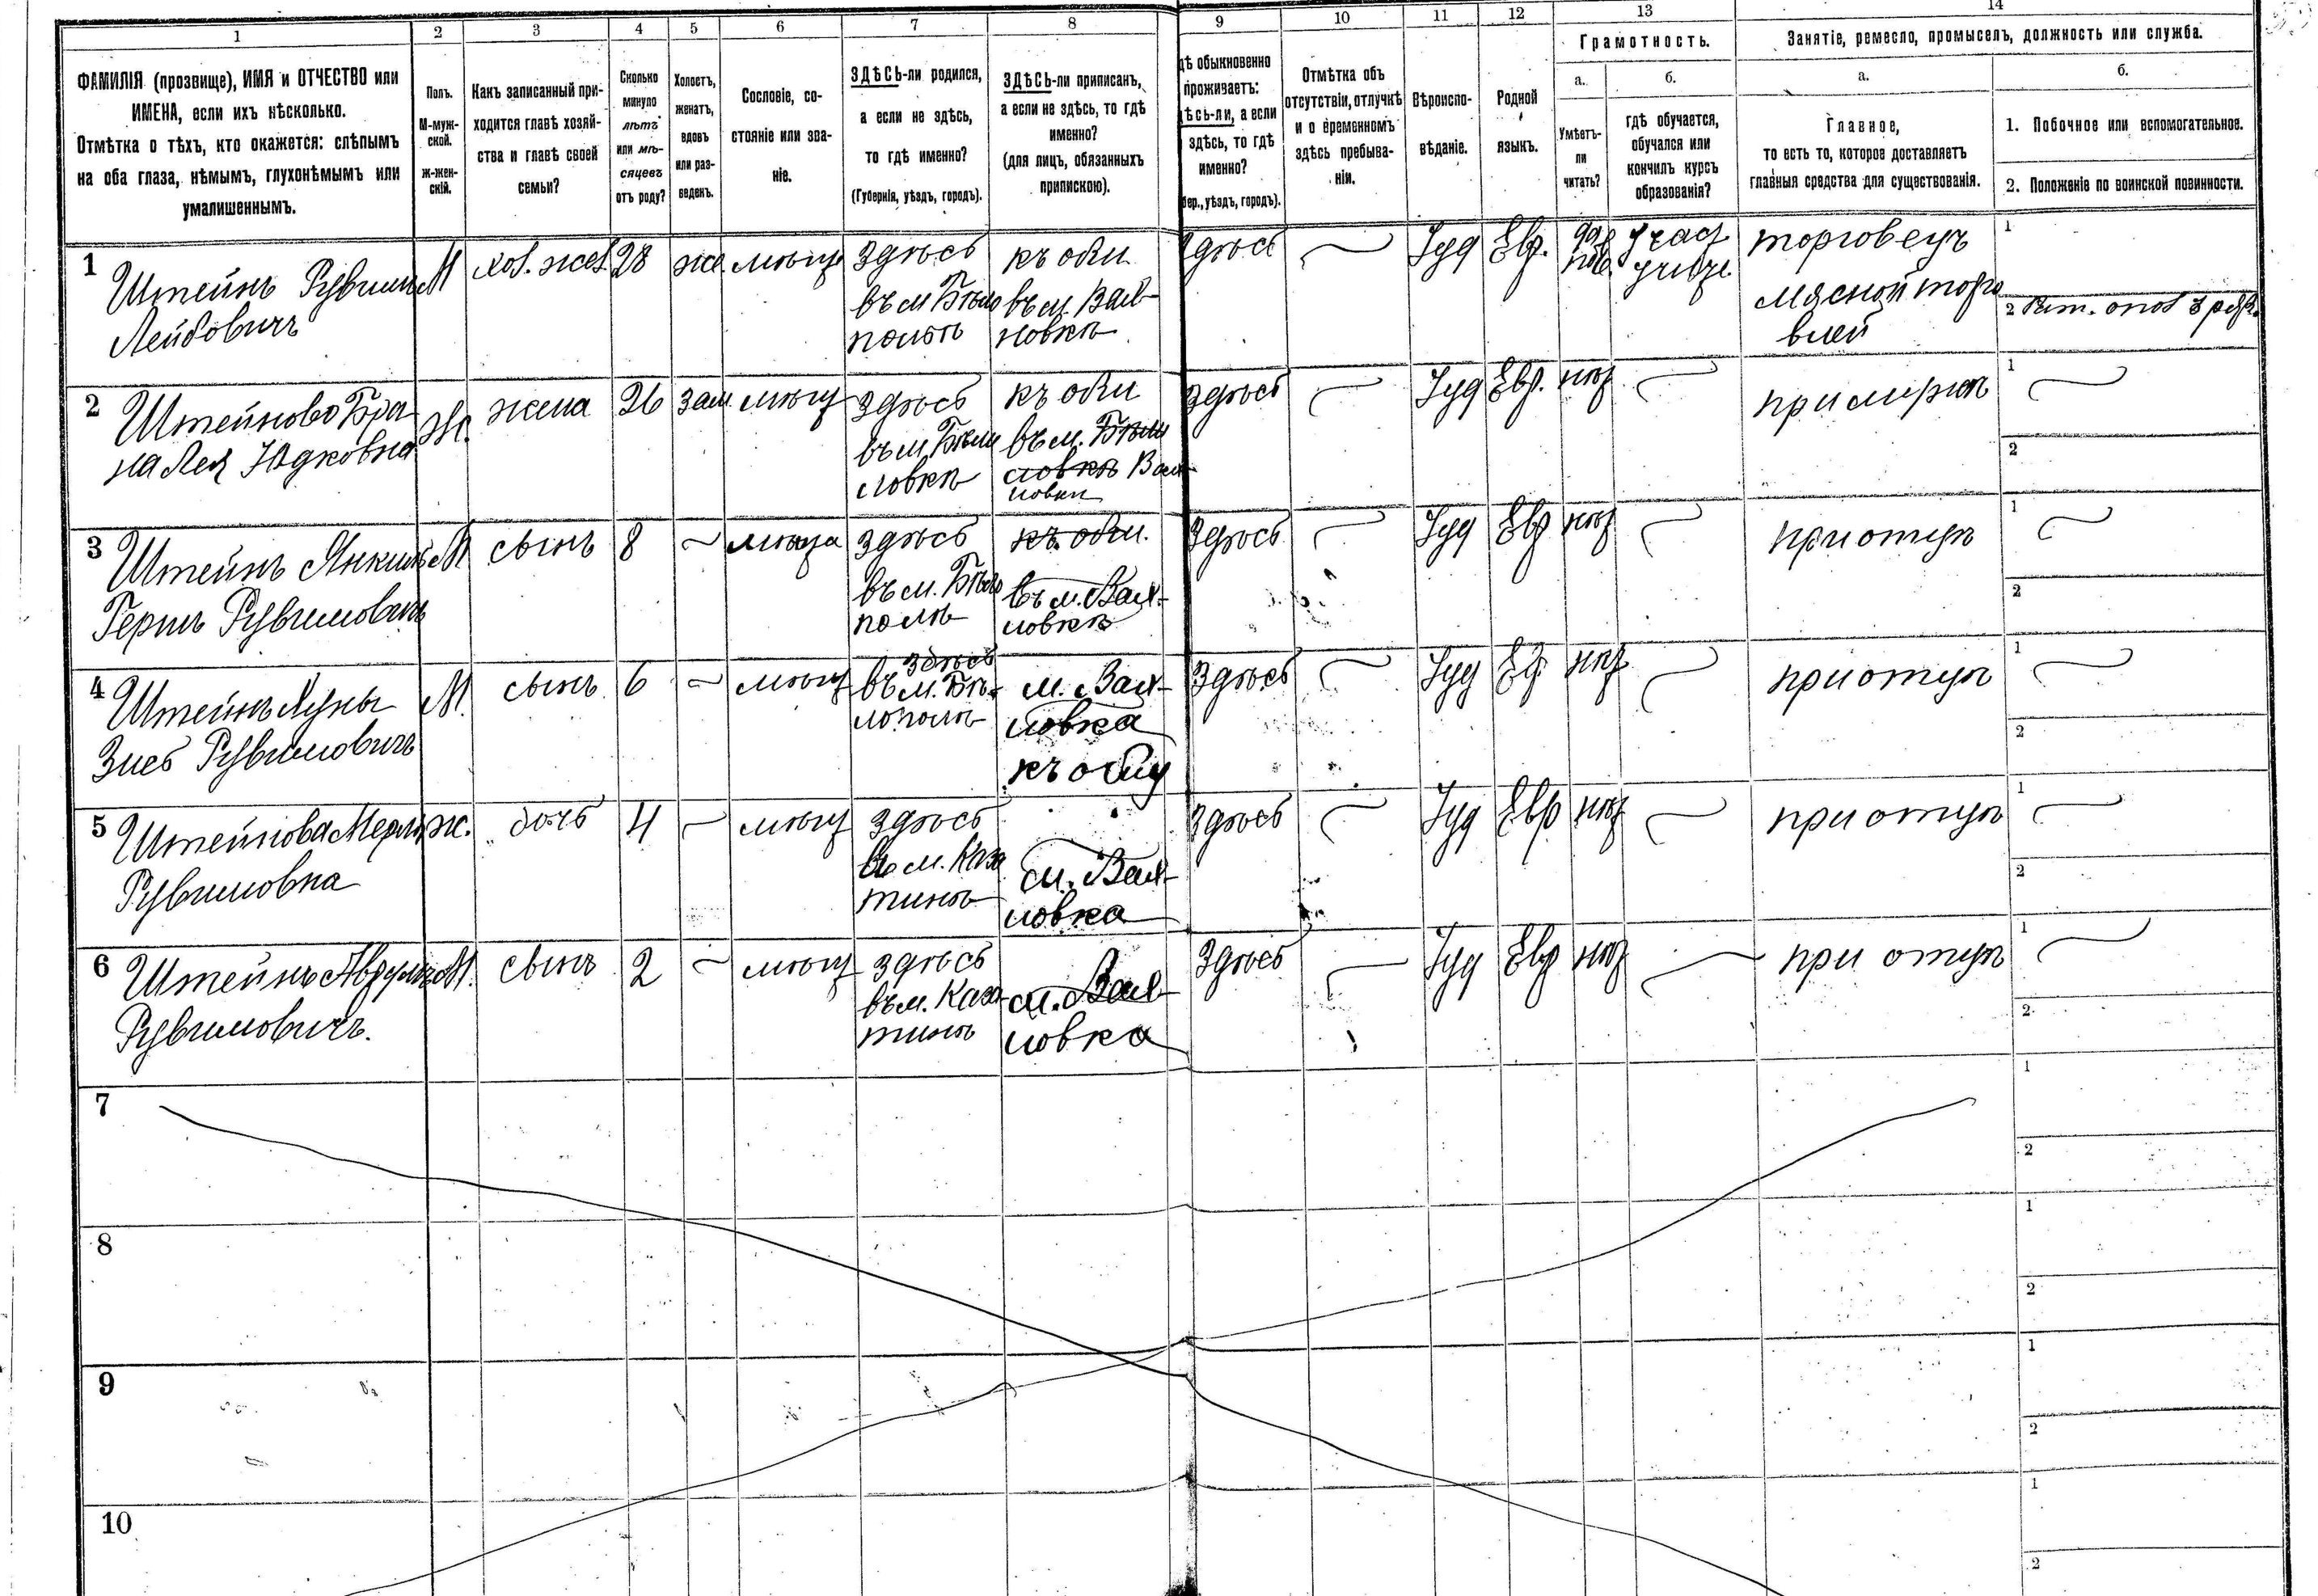 1 2 3 4 5 6 7 8 9 10 11 12 13 14
ФАМИЛІЯ (прозвище), ИМЯ и ОТЧЕСТВО или
ИМЕНА, если ихъ нѣсколько.
Отмѣтка о тѣхъ, кто окажется: слѣпымъ
на оба глаза, нѣмымъ, глухонѣмымъ или
умалишеннымъ.
Полъ.
М-муж-
ской.
Ж-жен-
скій.
Какъ записанный при-
ходится главѣ хозяй-
ства и главѣ своей
семьи?
Сколько
минуло
лѣтъ
или мѣ-
сяцевъ
отъ роду?
Холостъ,
женатъ,
вдовъ
или раз-
веденъ.
Сословіе, со-
стояніе или зва-
ніе.
ЗДѢСЬ-ли родился,
а если не здѣсь,
то гдѣ именно?
(Губернія, уѣздъ, городъ).
ЗДѢСЬ-ли приписанъ,
а если не здѣсь, то гдѣ
именно?
(для лицъ, обязанныхъ
припискою).
дѣ обыкновенно
проживаетъ:
ѣсь-ли, а если
здѣсь, то гдѣ
именно?
бер., уѣздъ, городъ).
Отмѣтка объ
отсутствіи, отлучкѣ
и о временномъ
здѣсь пребыва-
ніи.
Вѣроиспо-
вѣданіе.
Родной
языкъ.
Грамотность.
а.
Умѣетъ-
ли
читать?
б.
гдѣ обучается,
обучался или
кончилъ курсъ
образованія?
Занятіе, ремесло, промыселъ, должность или служба.
а.
Главное,
то есть то, которое доставляетъ
главныя средства для существованія.
б.
1. Побочное или вспомогательное.
2. Положеніе по воинской повинности.
1
Штейнъ Рувимъ
Лейбовичъ
М
28
же
мѣщ
здѣсь
въ м Бѣло
полѣ
въ м. Вах-
новкѣ
здѣсь
Іуд
Евр.
торговецъ
мясной торго
влей
1
2
2
Штейново Бра
на Лея Юдковна
Ж.
жена
26
зам
мѣщ
здѣсь
въ м Бѣли
ловкѣ
въ м. Бѣли
ловкѣ Вах
новки
здѣсь
Іуд
Евр.
при мужѣ
1
2
3
Штейнъ Янкиль
Герш Рувимовичъ
М
сынъ
8
здѣсь
въ м. Бѣло
полѣ
въ м. Вах-
новкѣ
здѣсь
Іуд
Евр
при отцѣ
1
2
4
Рувимовичъ
М.
сынъ
6
мѣщ
здѣсь
въ м. Бѣ-
лополѣ
м. Вах-
новка
здѣсь
Іуд
при отцѣ
1
2
5
Штейнова
Рувимовна
ж.
дочь
4
мѣщ
здѣсь
въ м. Каза
тинѣ
м. Вах-
новка
здѣсь
Іуд
Евр
при отцѣ
1
2
6
Штейнъ
Рувимовичъ.
М.
сынъ
2
мѣщ
здѣсь
въ м. Каза
тинѣ
м. Вах-
новка
здѣсь
Іуд
Евр
при отцѣ
1
2
7
1
2
8
1
2
9
1
2
10
1
2